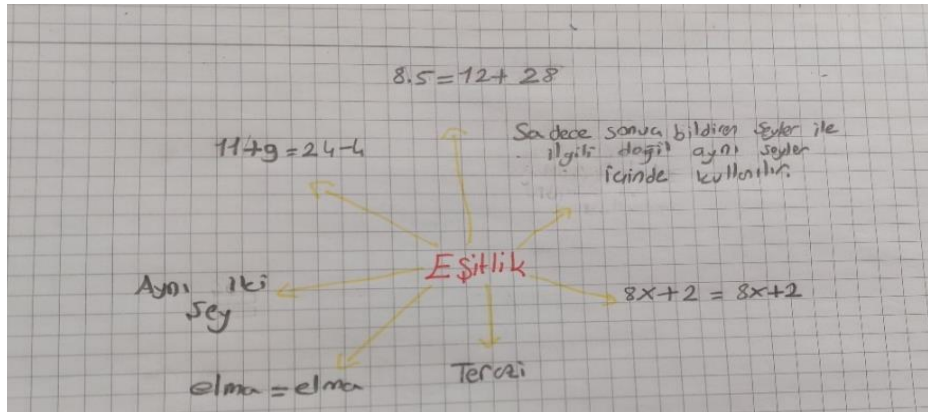 8.5=12+ 28
Sadece sonva bildiren şeyler ile
ilgili değil aynı şeyler
içinde kullanılır.
11+9=24-4
Eşitlik
Aynı iki
şey
8x+2 = 8x+2
Terazi
elma = elma